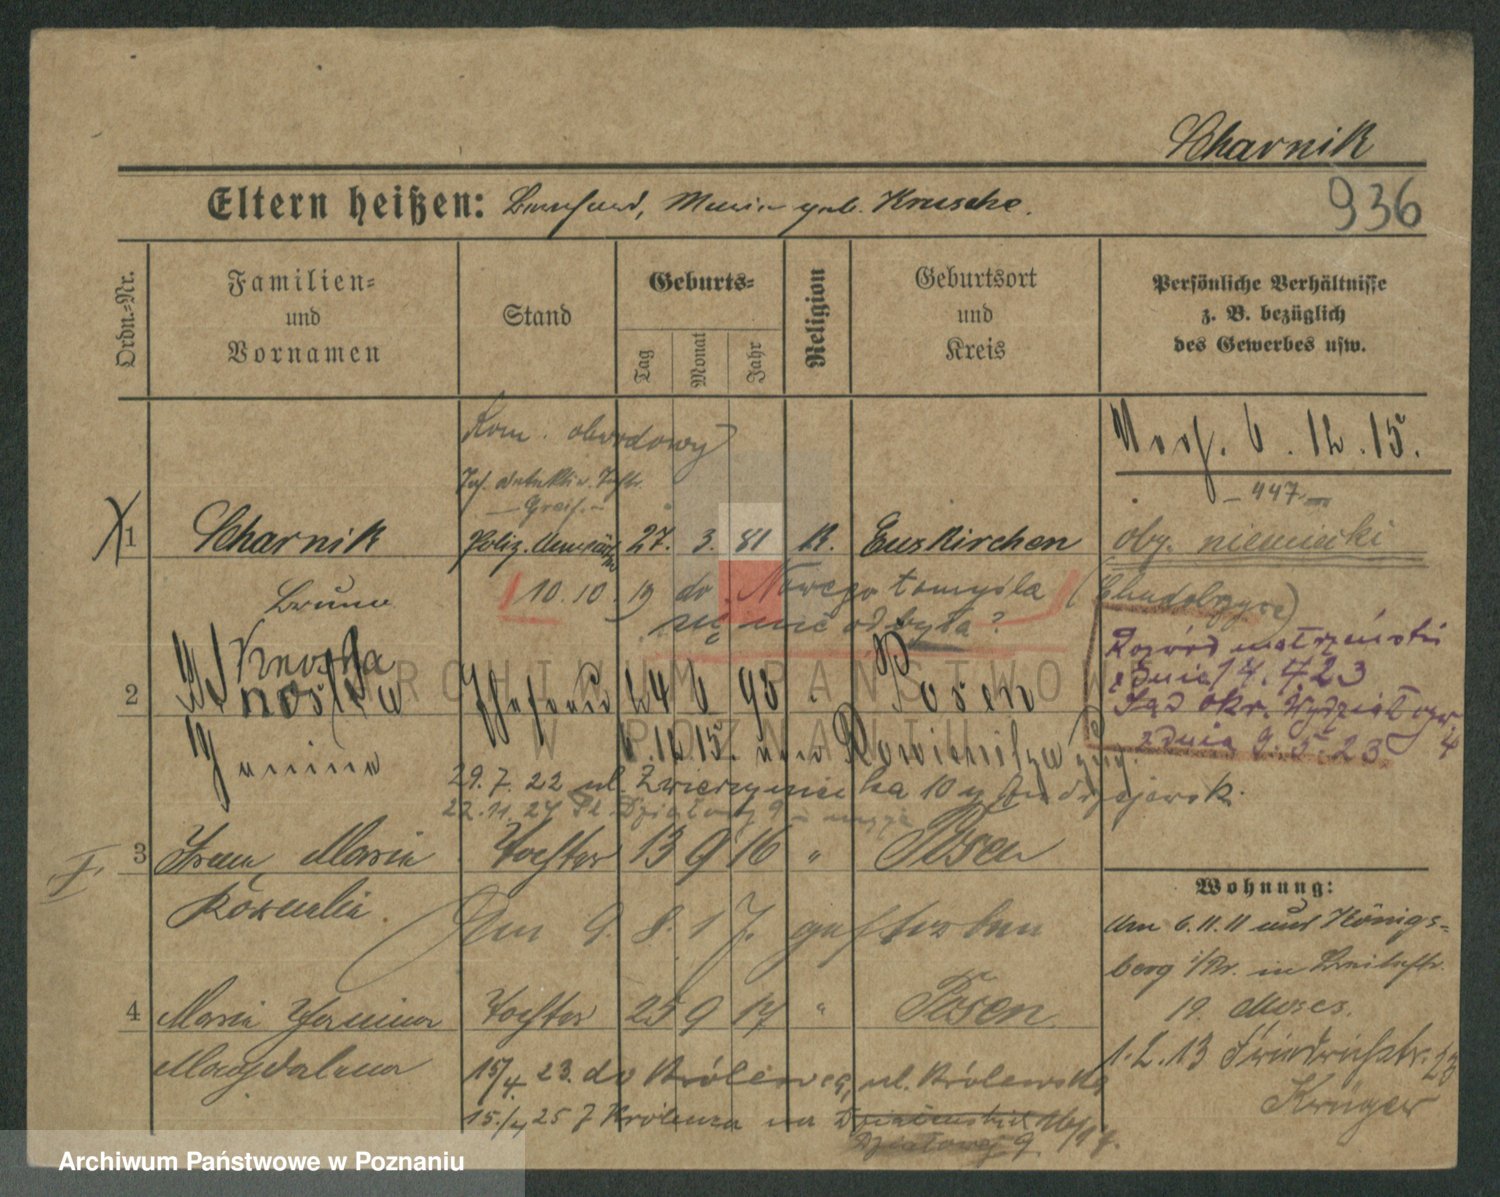 Scharnik
936
Eltern heißen: Bernhard, Maria geb. Krusche.
Ordn.-Nr.
Familien- und Vornamen
Stand
Geburts-
Tag
Monat
Jahr
Religion
Geburtsort und Kreis
Persönliche Verhältnisse z. B. bezüglich des Gewerbes usw.
Kom. obwodowy
6.12.15.
447
1 Scharnik 27. 3. 81 K. Euskirchen
oby. niemiecki
Bruno
10.10. 19 do Nowego tomyśla
się nie odbyła?
Rozwód małżeński
z dnia 14.4.23
Sąd Okr. Wydział cyw.
z dnia 9.5.23
ARCHIWUM PAŃSTWOWE
W POZNANIU
2 Knoska Ehefrau 24 6 93 " Posen
Janina
29.7.22 ul. Zwierzyniecka 10
22.11.24 Pl. Działowy 9
3 Irena Maria Tochter 13 9 16 " Posen
Rosalia.
Am 9.8.17. gestorben
Wohnung:
Am 6.11.11 aus Königs-
berg i/Pr. in Breitestr.
19. Moses.
4 Maria Janina Tochter 25 9 17 " Posen
Magdalena
1.2.13 Friedrichstr. 23
Krüger
15/4. 23. do Królewca, ul. Królewska
15./4 25 z Królewca na
Działowej 9
Archiwum Państwowe w Poznaniu